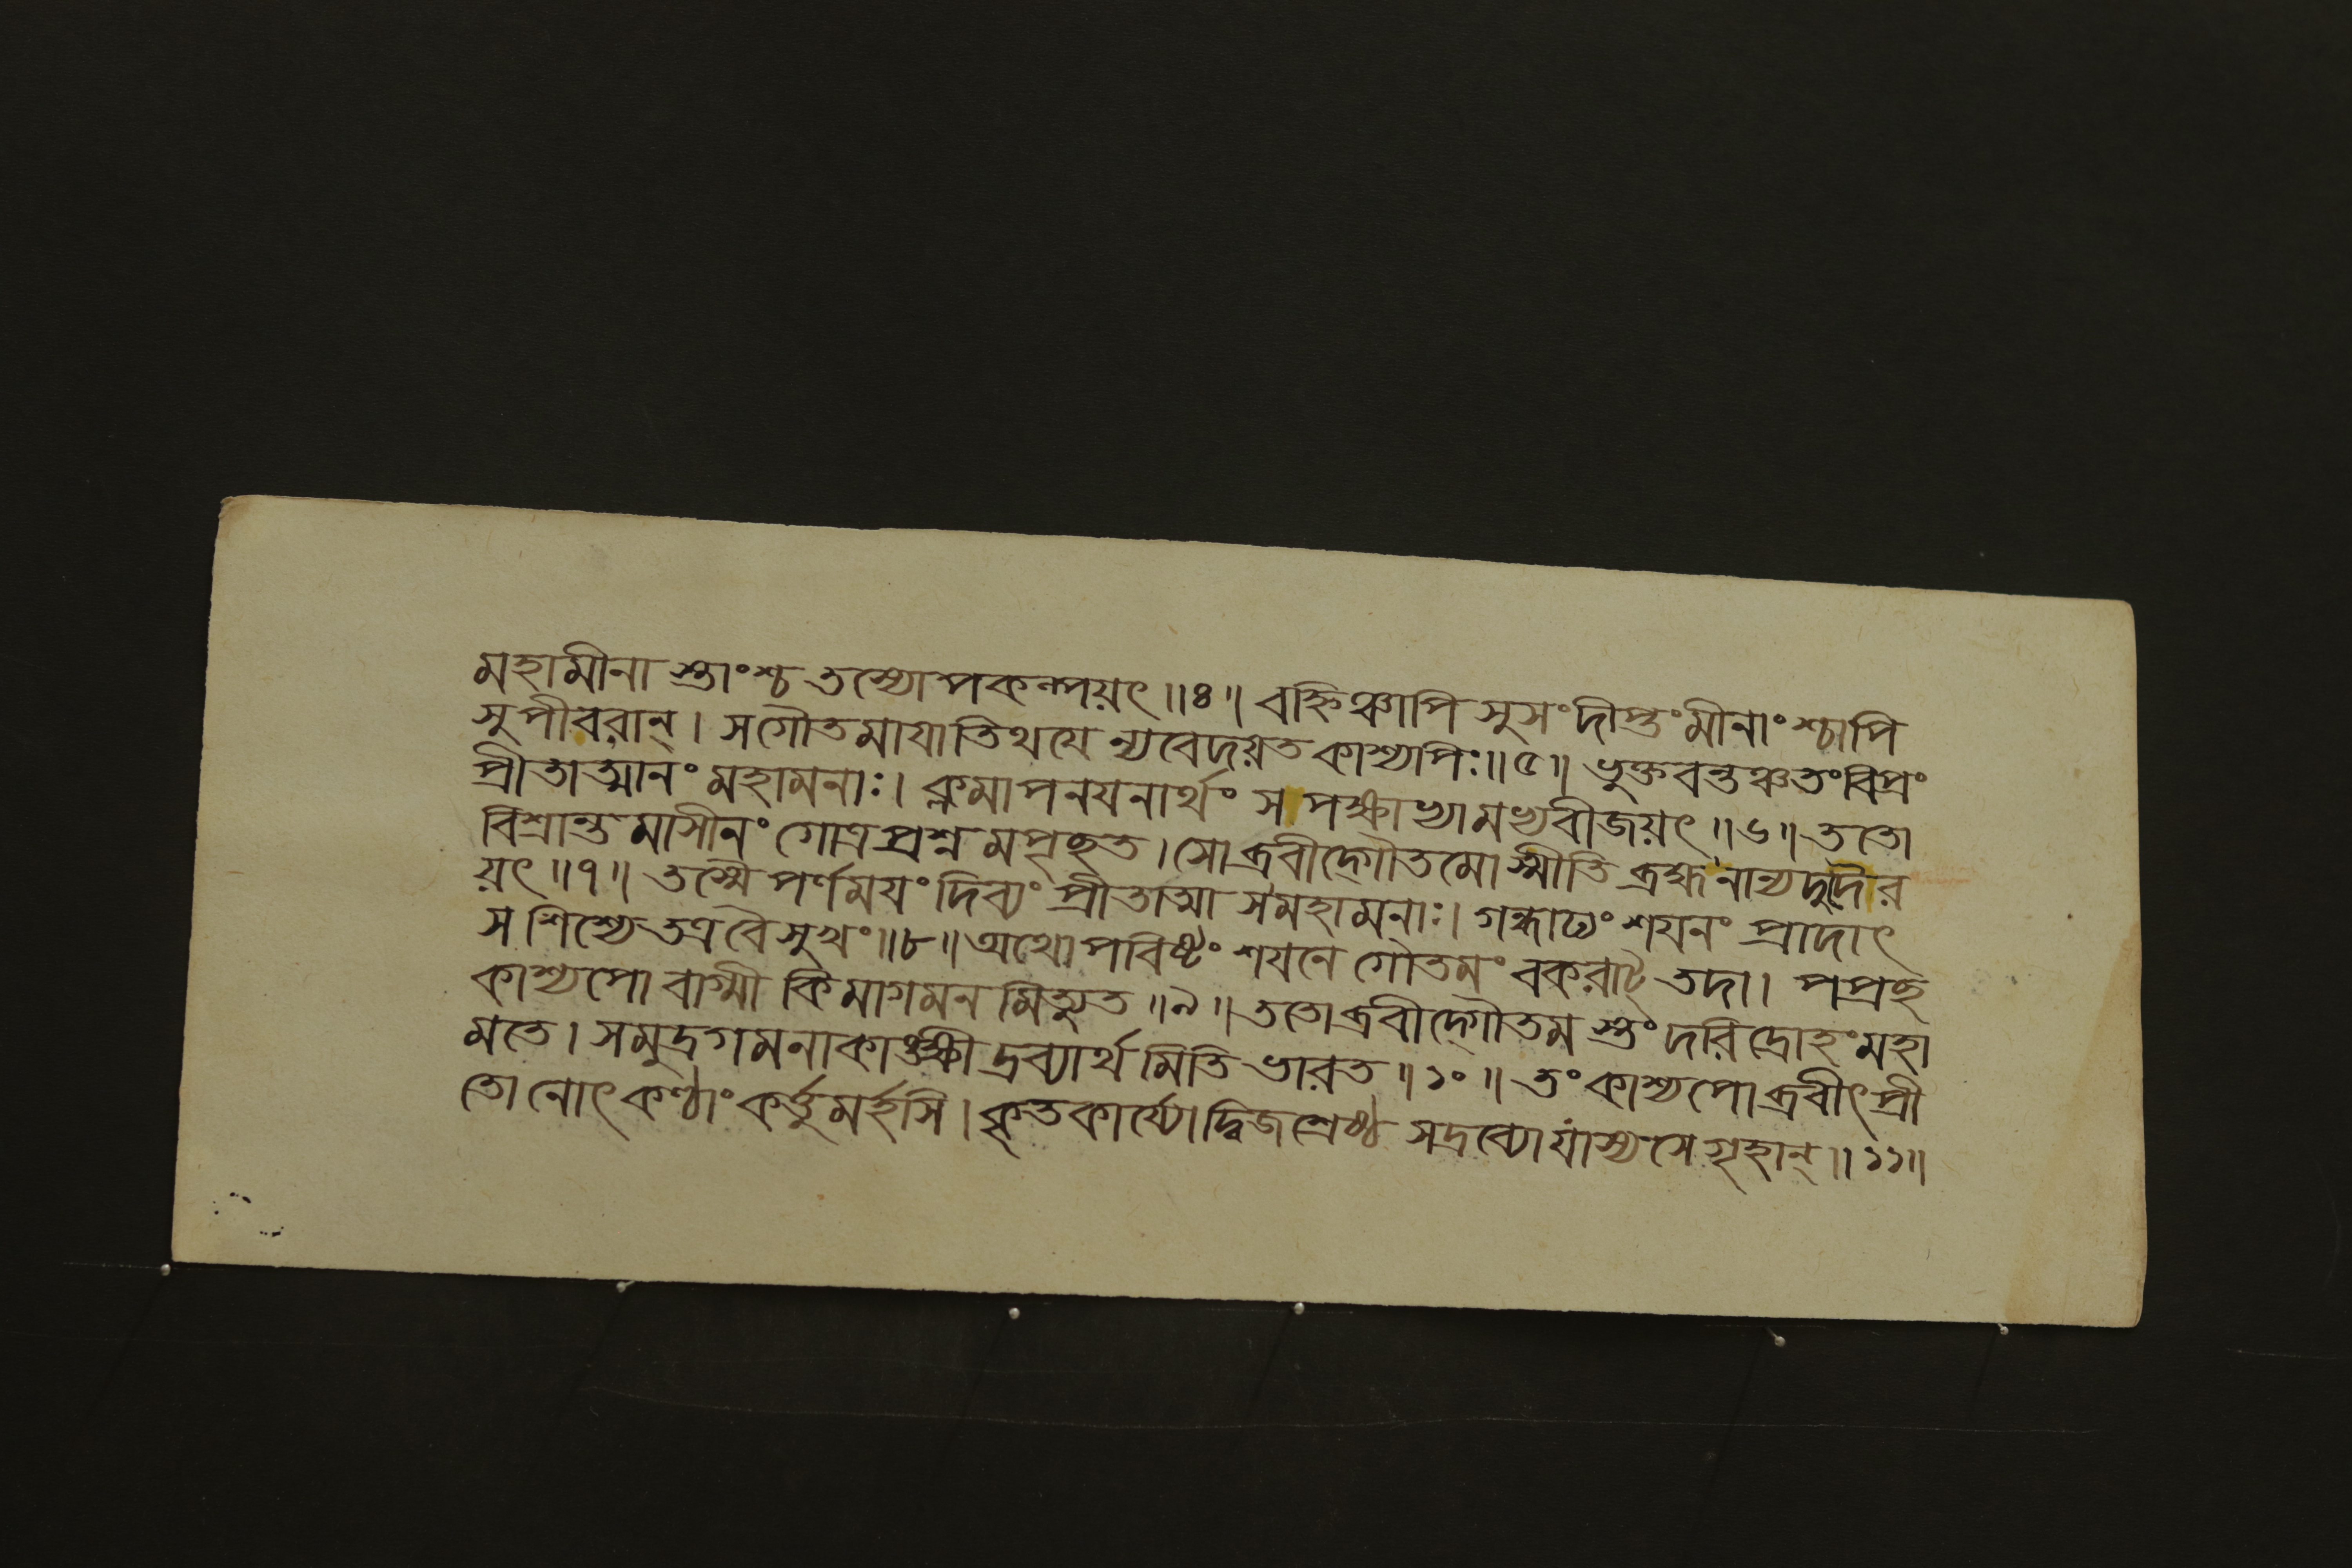 মহামীনা স্তাংশ্চ তস্যোপকল্পয়ৎ ॥৪॥ বহ্নিঞ্চাপি সুসংদীপ্তং মীনাংশ্চাপি
সুপীবরান্। স গৌতমাযাতিথযে ন্যবেদয়ত কাশ্যপিঃ॥৫॥ ভুক্তবন্তঞ্চ তং বিপ্রং
প্রীতাত্মানং মহামনাঃ। ক্লমাপনযনার্থং স পক্ষাভ্যামভ্যবীজয়ৎ ॥৬॥ ততো
বিশ্রান্তমাসীনং গোত্রপ্রশ্নমপৃচ্ছত। সোব্রবীদ্গৌতমোস্মীতি ব্রহ্মনান্যদুদৈর
য়ৎ ॥৭॥ তস্মৈ পর্ণমযং দিব্যং প্রীতাত্মা স মহামনাঃ। গন্ধাঢ্যং শযনং প্রাদাৎ
স শিশ্যে তত্র বৈ সুখং॥৮॥ অথোপবিষ্টং শযনে গৌতমং বকরাট্ তদা। পপ্রচ্ছ
কাশ্যপো বাগ্মী কিমাগমনমিত্যুত ॥৯॥ ততোব্রবীদ্গৌতমস্তং দরিদ্রোহং মহা
মতে। সমুদ্রগমনাকাঙ্ক্ষী দ্রব্যার্থমিতি ভারত ॥১০॥ তং কাশ্যপোব্রবীৎ প্রী
তো নোৎকণ্ঠাং কর্ত্তুমর্হসি। কৃতকার্য্যো দ্বিজশ্রেষ্ঠ সদ্রব্যো যাস্যসে গৃহান্॥১১॥